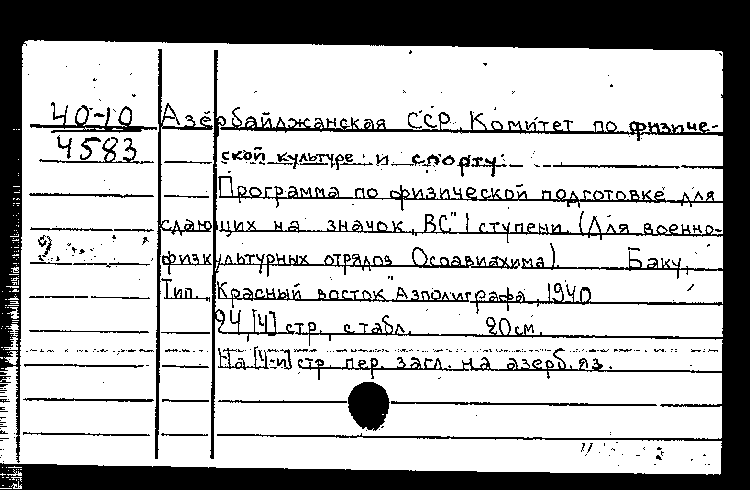 40-10
4583
Азербайджанская ССР. Комитет по физиче-
ской культуре и спорту.
Программа по физической подготовке для
сдающих на значок „ВС" I ступени. (Для военно-
физкультурных отрядов Осоавиахима). Баку,
Тип. „Красный восток" Азполиграфа, 1940
24, [4] стр., с табл. 20 см.
На [4-й] стр. пер. загл. на азерб. яз.